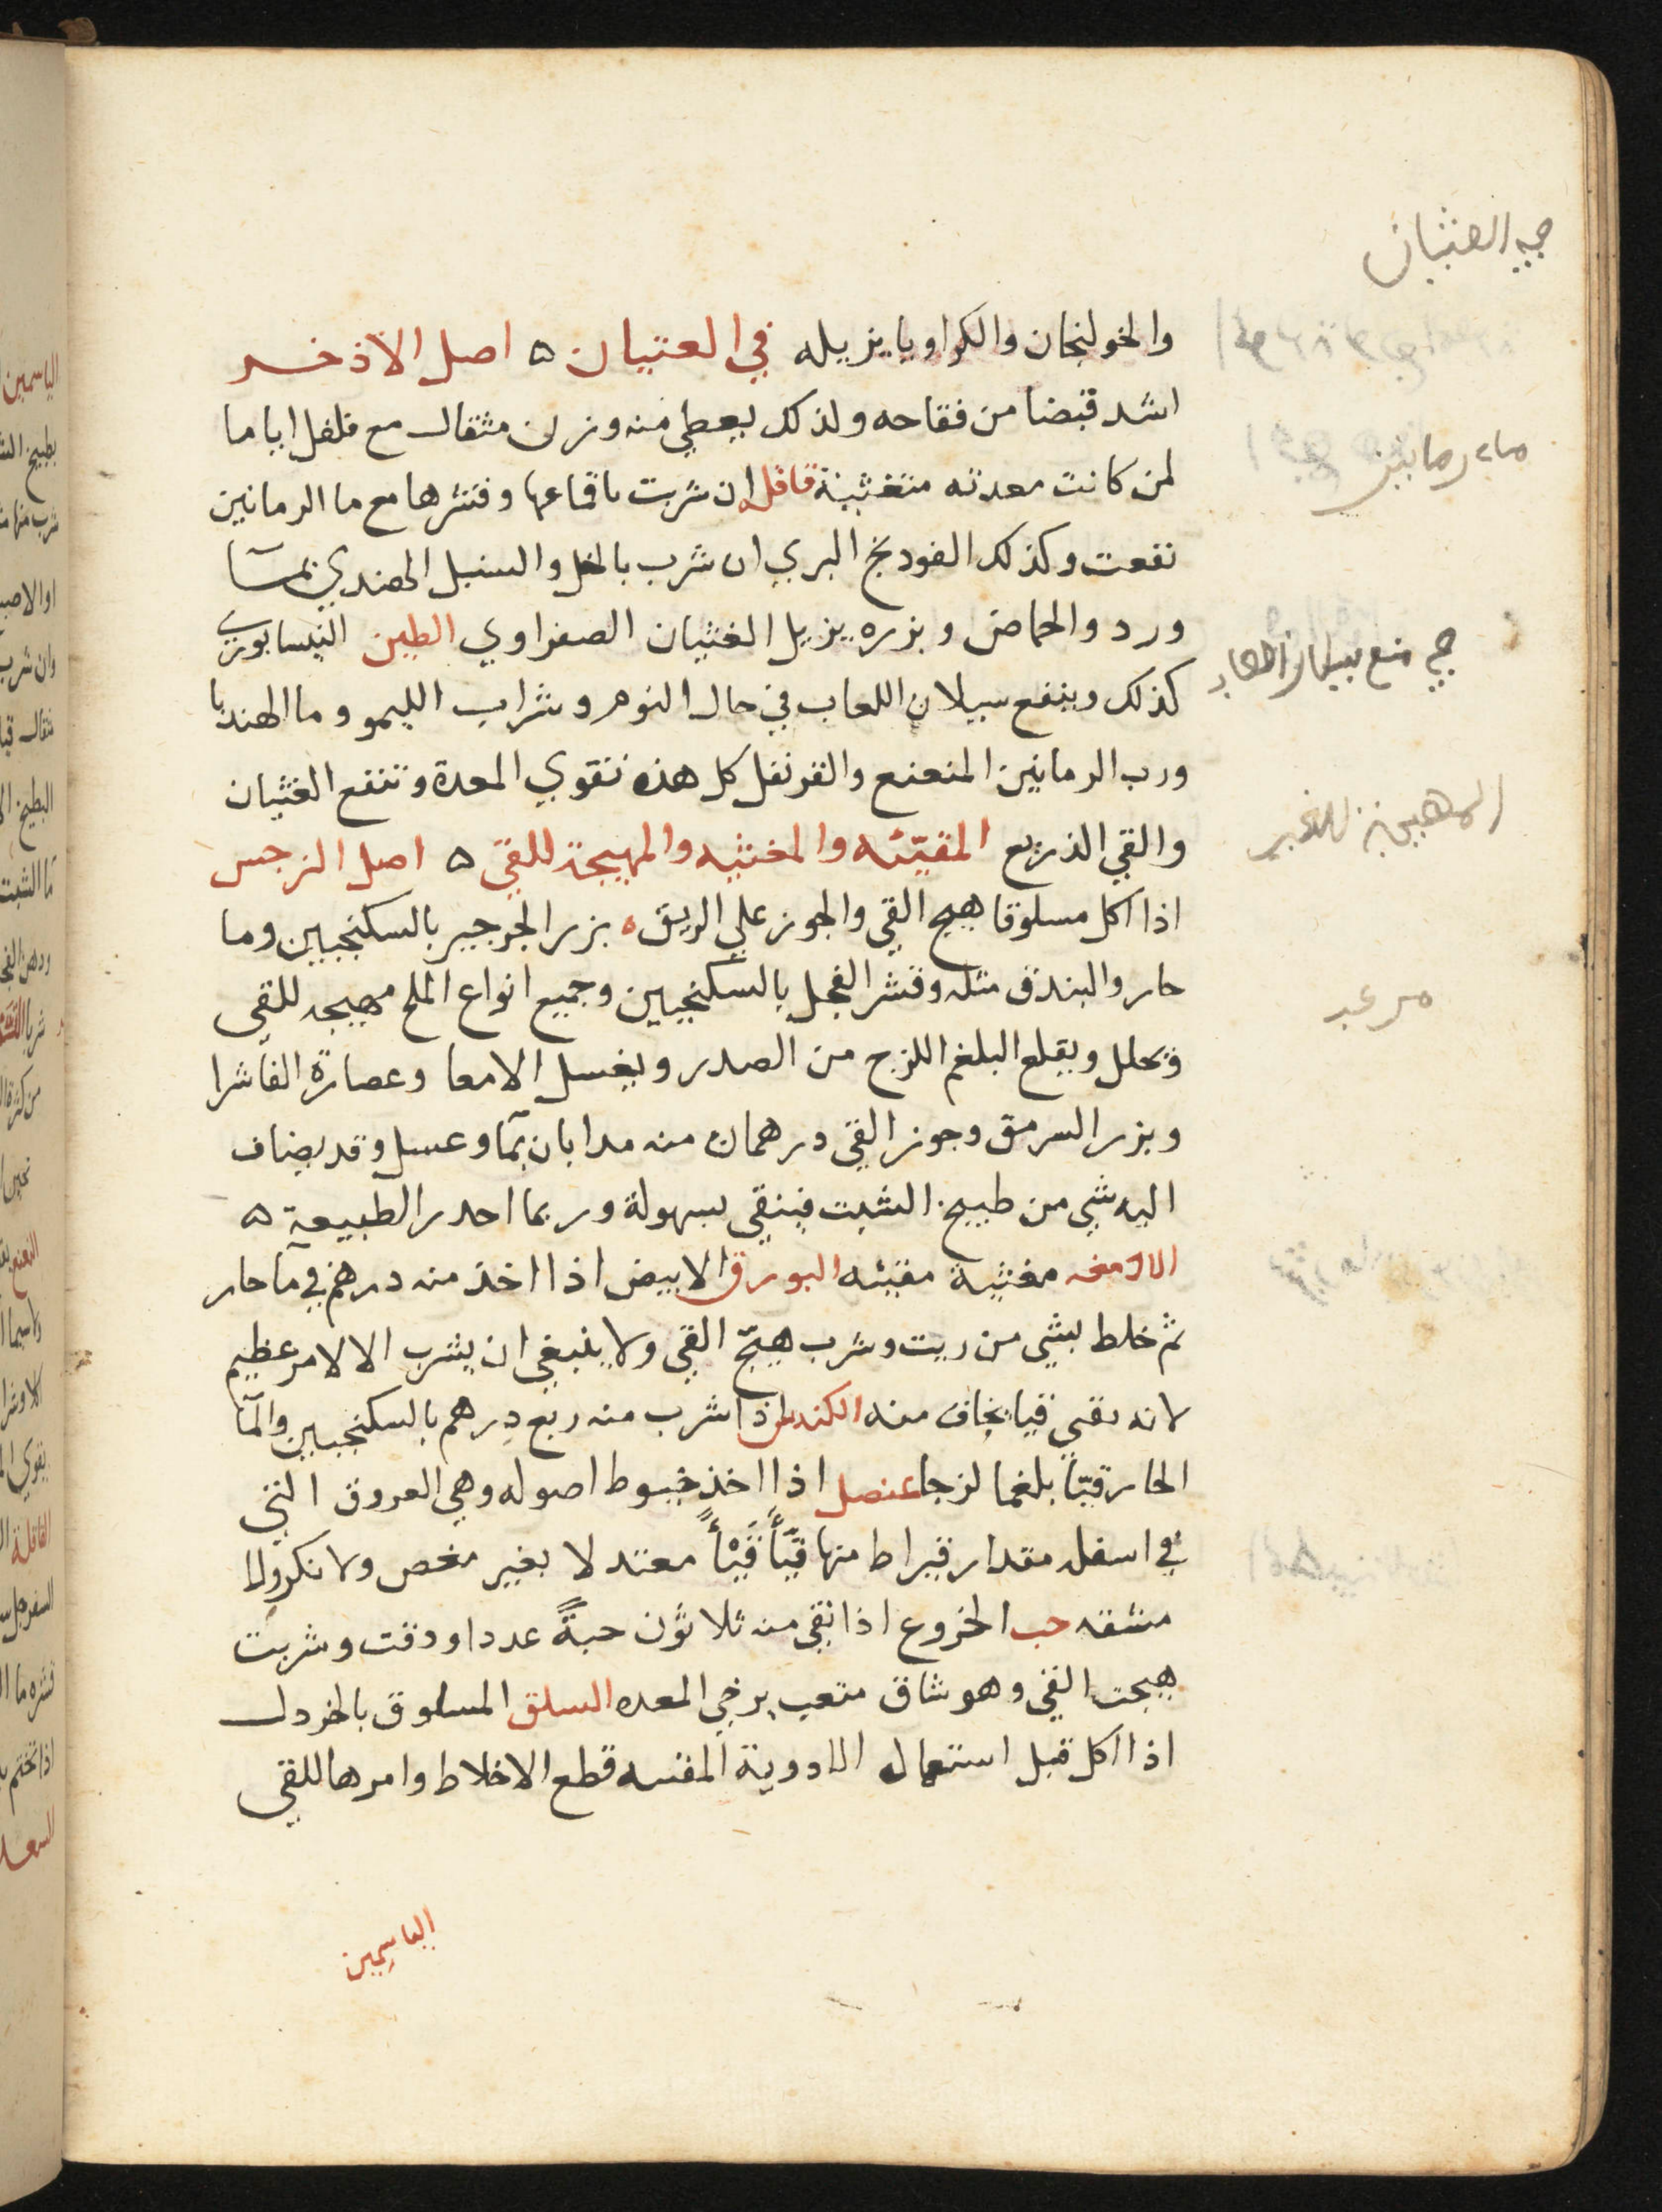 والخولنجان والكراويا يزيله في العتيان ٥ اصل الاذخر
اشد قبضا من فقاحه ولذلك يعطي منه وزن مثقال مع فلفل اياما
لمن كانت معدته متغثية قاقله ان شربت باقماعها وقشرها مع ما الرمانين
نفعت وكذلك الفودنج البري ان شرب بالخل والسنبل الهندي بمآ
ورد والحماض وبزره يزيل الغثيان الصفراوي الطين النيسابوري
كذلك وينفع سيلان اللعاب في حال النوم وشراب الليمو وما الهندبا
ورب الرمانين المنعنع والقرنفل كل هذه تقوي المعدة وتنفع الغثيان
والقي الذريع المقيّئه والمغثيه والمهيجة للقئ ٥ اصل النرجس
اذا اكل مسلوقا هيج القي والجوز علي الريق ٥ بزر الجرجير بالسكنجبين وما
حار والبندق مثله وقشر الفجل بالسكنجبين وجميع انواع الملح مهيجه للقي
وتحلل ويقلع البلغم اللزج من الصدر ويغسل الامعا وعصارة الفاشرا
وبزر السرمق وجوز القي درهمان منه مدابان بمآ وعسل وقد يضاف
اليه شي من طبيخ الشبت فينقي بسهولة وربما احدر الطبيعة ٥
الادمغه مغثية مقيئه البورق الابيض اذا اخذ منه درهم في مآ حار
ثم خلط بشي من زيت وشرب هيّج القي ولا ينبغي ان يشرب الا لامر عظيم
لانه يقي قيا يخاف منه الكندس اذا شرب منه ربع درهم بالسكنجبين والمآ
الحار قيّأ بلغما لزجا عنصل اذا اخذ خيوط اصوله وهي العروق التي
في اسفله مقدار قيراط منها قيّأ قيْأً معتدلا بغير مغص ولا نكرولا
مشقه حب الخروع اذا نقي منه ثلاثون حبةً عددا ودقت وشربت
هيجت القي وهو شاق متعب يرخي المعده السلق المسلوق بالخردل
اذا اكل قبل استعمال الادوية المقيه قطع الاخلاط وامرها للقي
الياسمين
الغثيان
ماء رمانين